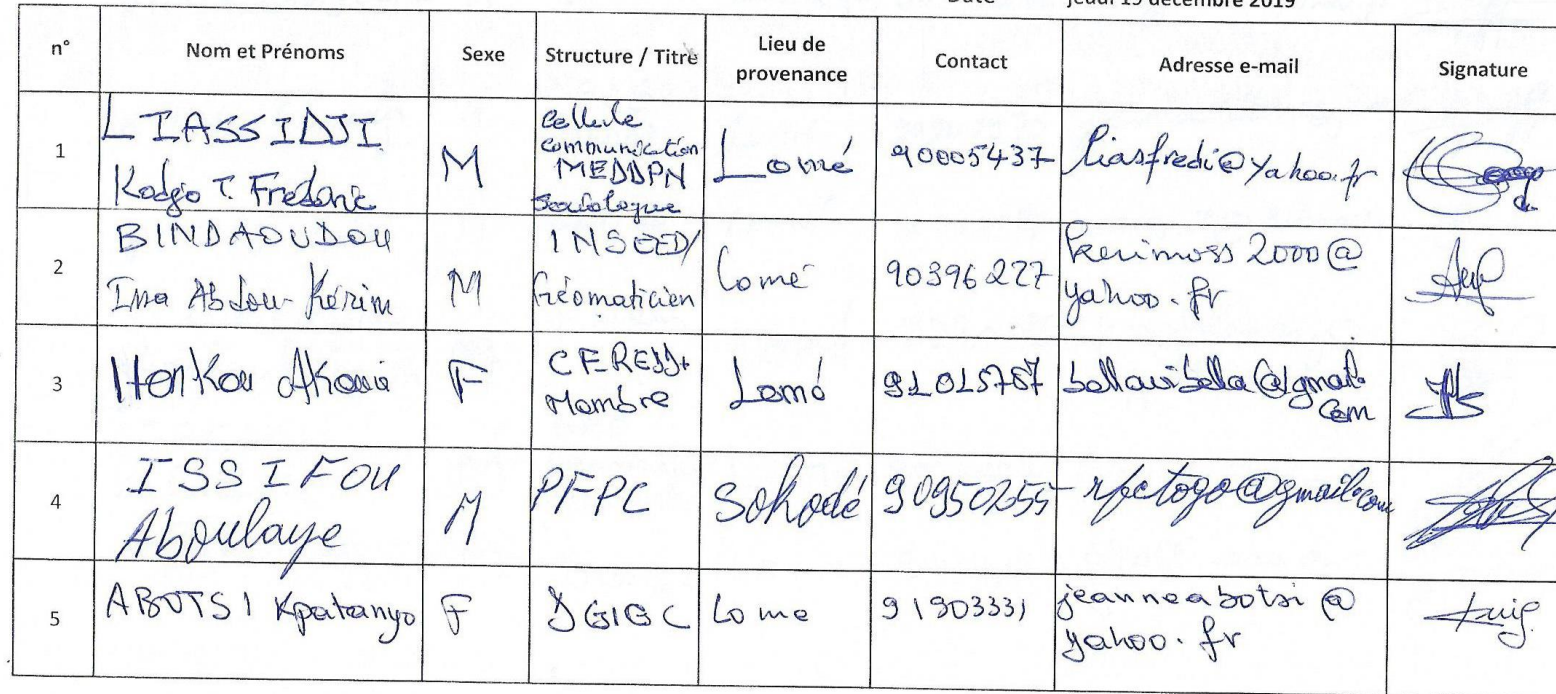 Date jeudi 19 décembre 2019
n° Nom et Prénoms Sexe Structure / Titre Lieu de provenance Contact Adresse e-mail Signature
1 LIASSIDJI Kodjo T. Frédéric M Cellule communication MEDDPN Sociologue Lomé 90005437 liasfredi@yahoo.fr
2 BINDAOUDOU Ima Abdou-Kérim M INSEED/ Géomaticien Lomé 90396227 kerimoss2000@ yahoo.fr
3 Honkou Akouvi F Membre Lomé
4 ISSIFOU Aboulaye M PFPC Sokodé 90950255 rfctogo@gmail.com
5 ABOTSI Kpatanyo F DGIGC Lome 91903331 jeanneabotsi@ yahoo.fr